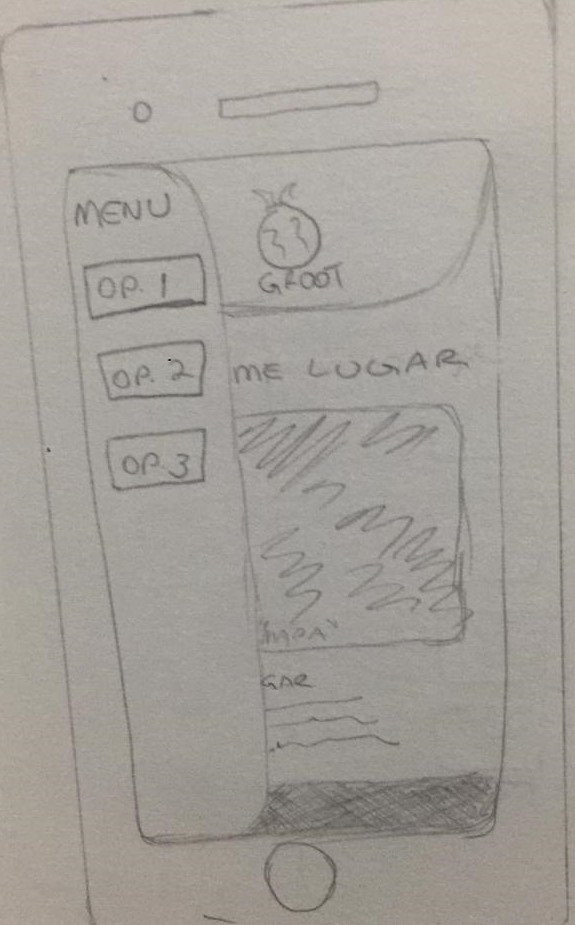 MENU
OP. 1
OP. 2
OP. 3
GROOT
ME LUGAR
GAR